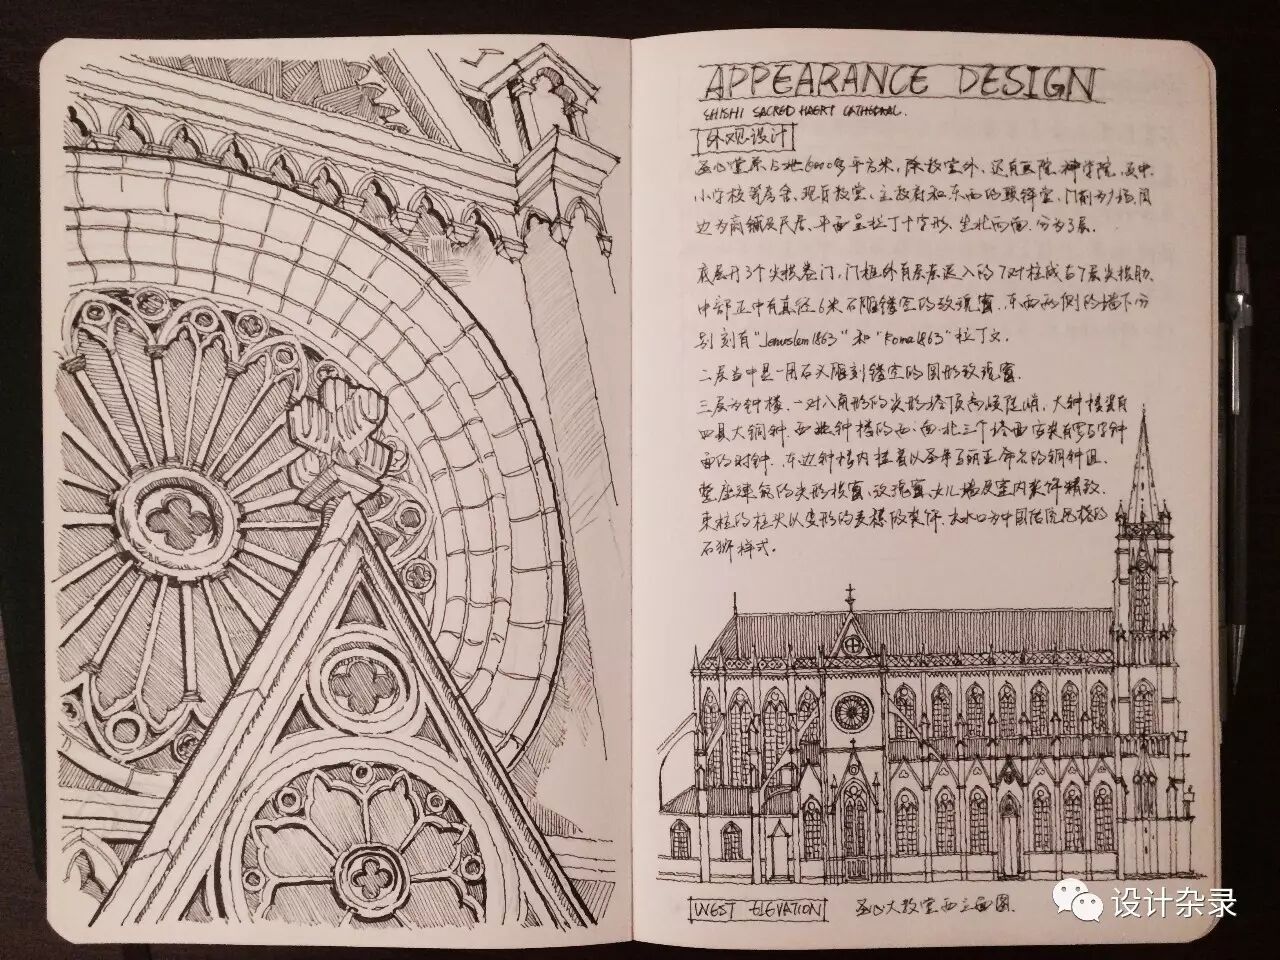 APPEARANCE DESIGN
SHISHI SACRED HAERT CATHEDRAL.
外观设计
圣心堂系占地6000多平方米，除教堂外，还有医院、神学院、及中、
小学校等房舍，现有教堂、主教府和东西的联锋堂，门前为广场，周
边为商铺及民居，平面呈拉丁十字形，坐北向南，分为3层。
底层开3个尖拱卷门，门框外有层层退入的7对柱或右7层尖拱肋，
中部正中有直径6米石雕镂空的玫瑰窗，东西两侧的墙下分
别刻有"Jerusalem1863"和"Roma1863"拉丁文。
二层当中是一用石头雕刻镂空的圆形玫瑰窗。
三层为钟楼，一对八角形的尖形塔顶高峻陡峭，大钟楼装有
四具大铜钟，西边钟楼的西、南、北三个塔面安装有罗马字钟
面的时钟，东边钟楼内挂着以圣母玛丽亚命名的铜钟
整座建筑的尖形拱窗、玫瑰窗、女儿墙及室内装饰精致，
束柱的柱头以变形的麦穗做装饰，出水口为中国传统风格的
石狮样式。
WEST ELEVATION
圣心大教堂西立面图
设计杂录